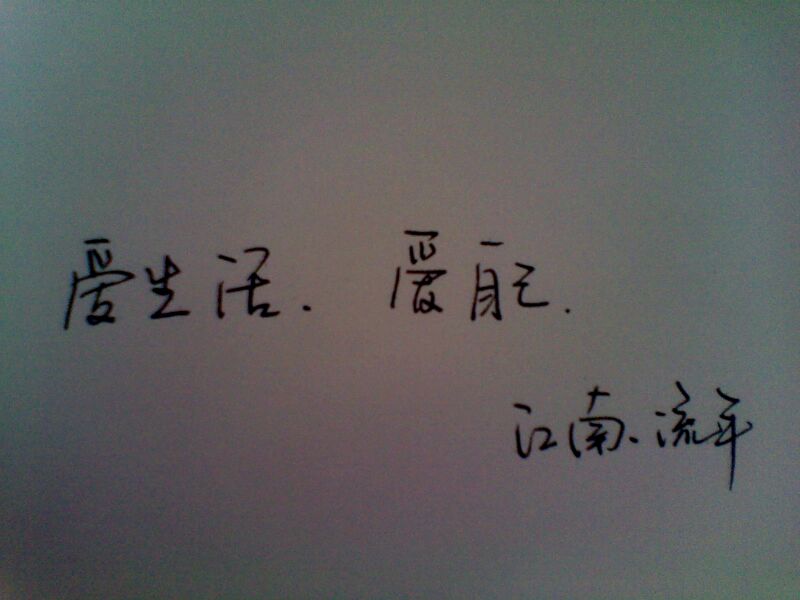 爱生活. 爱自己.
江南、流年